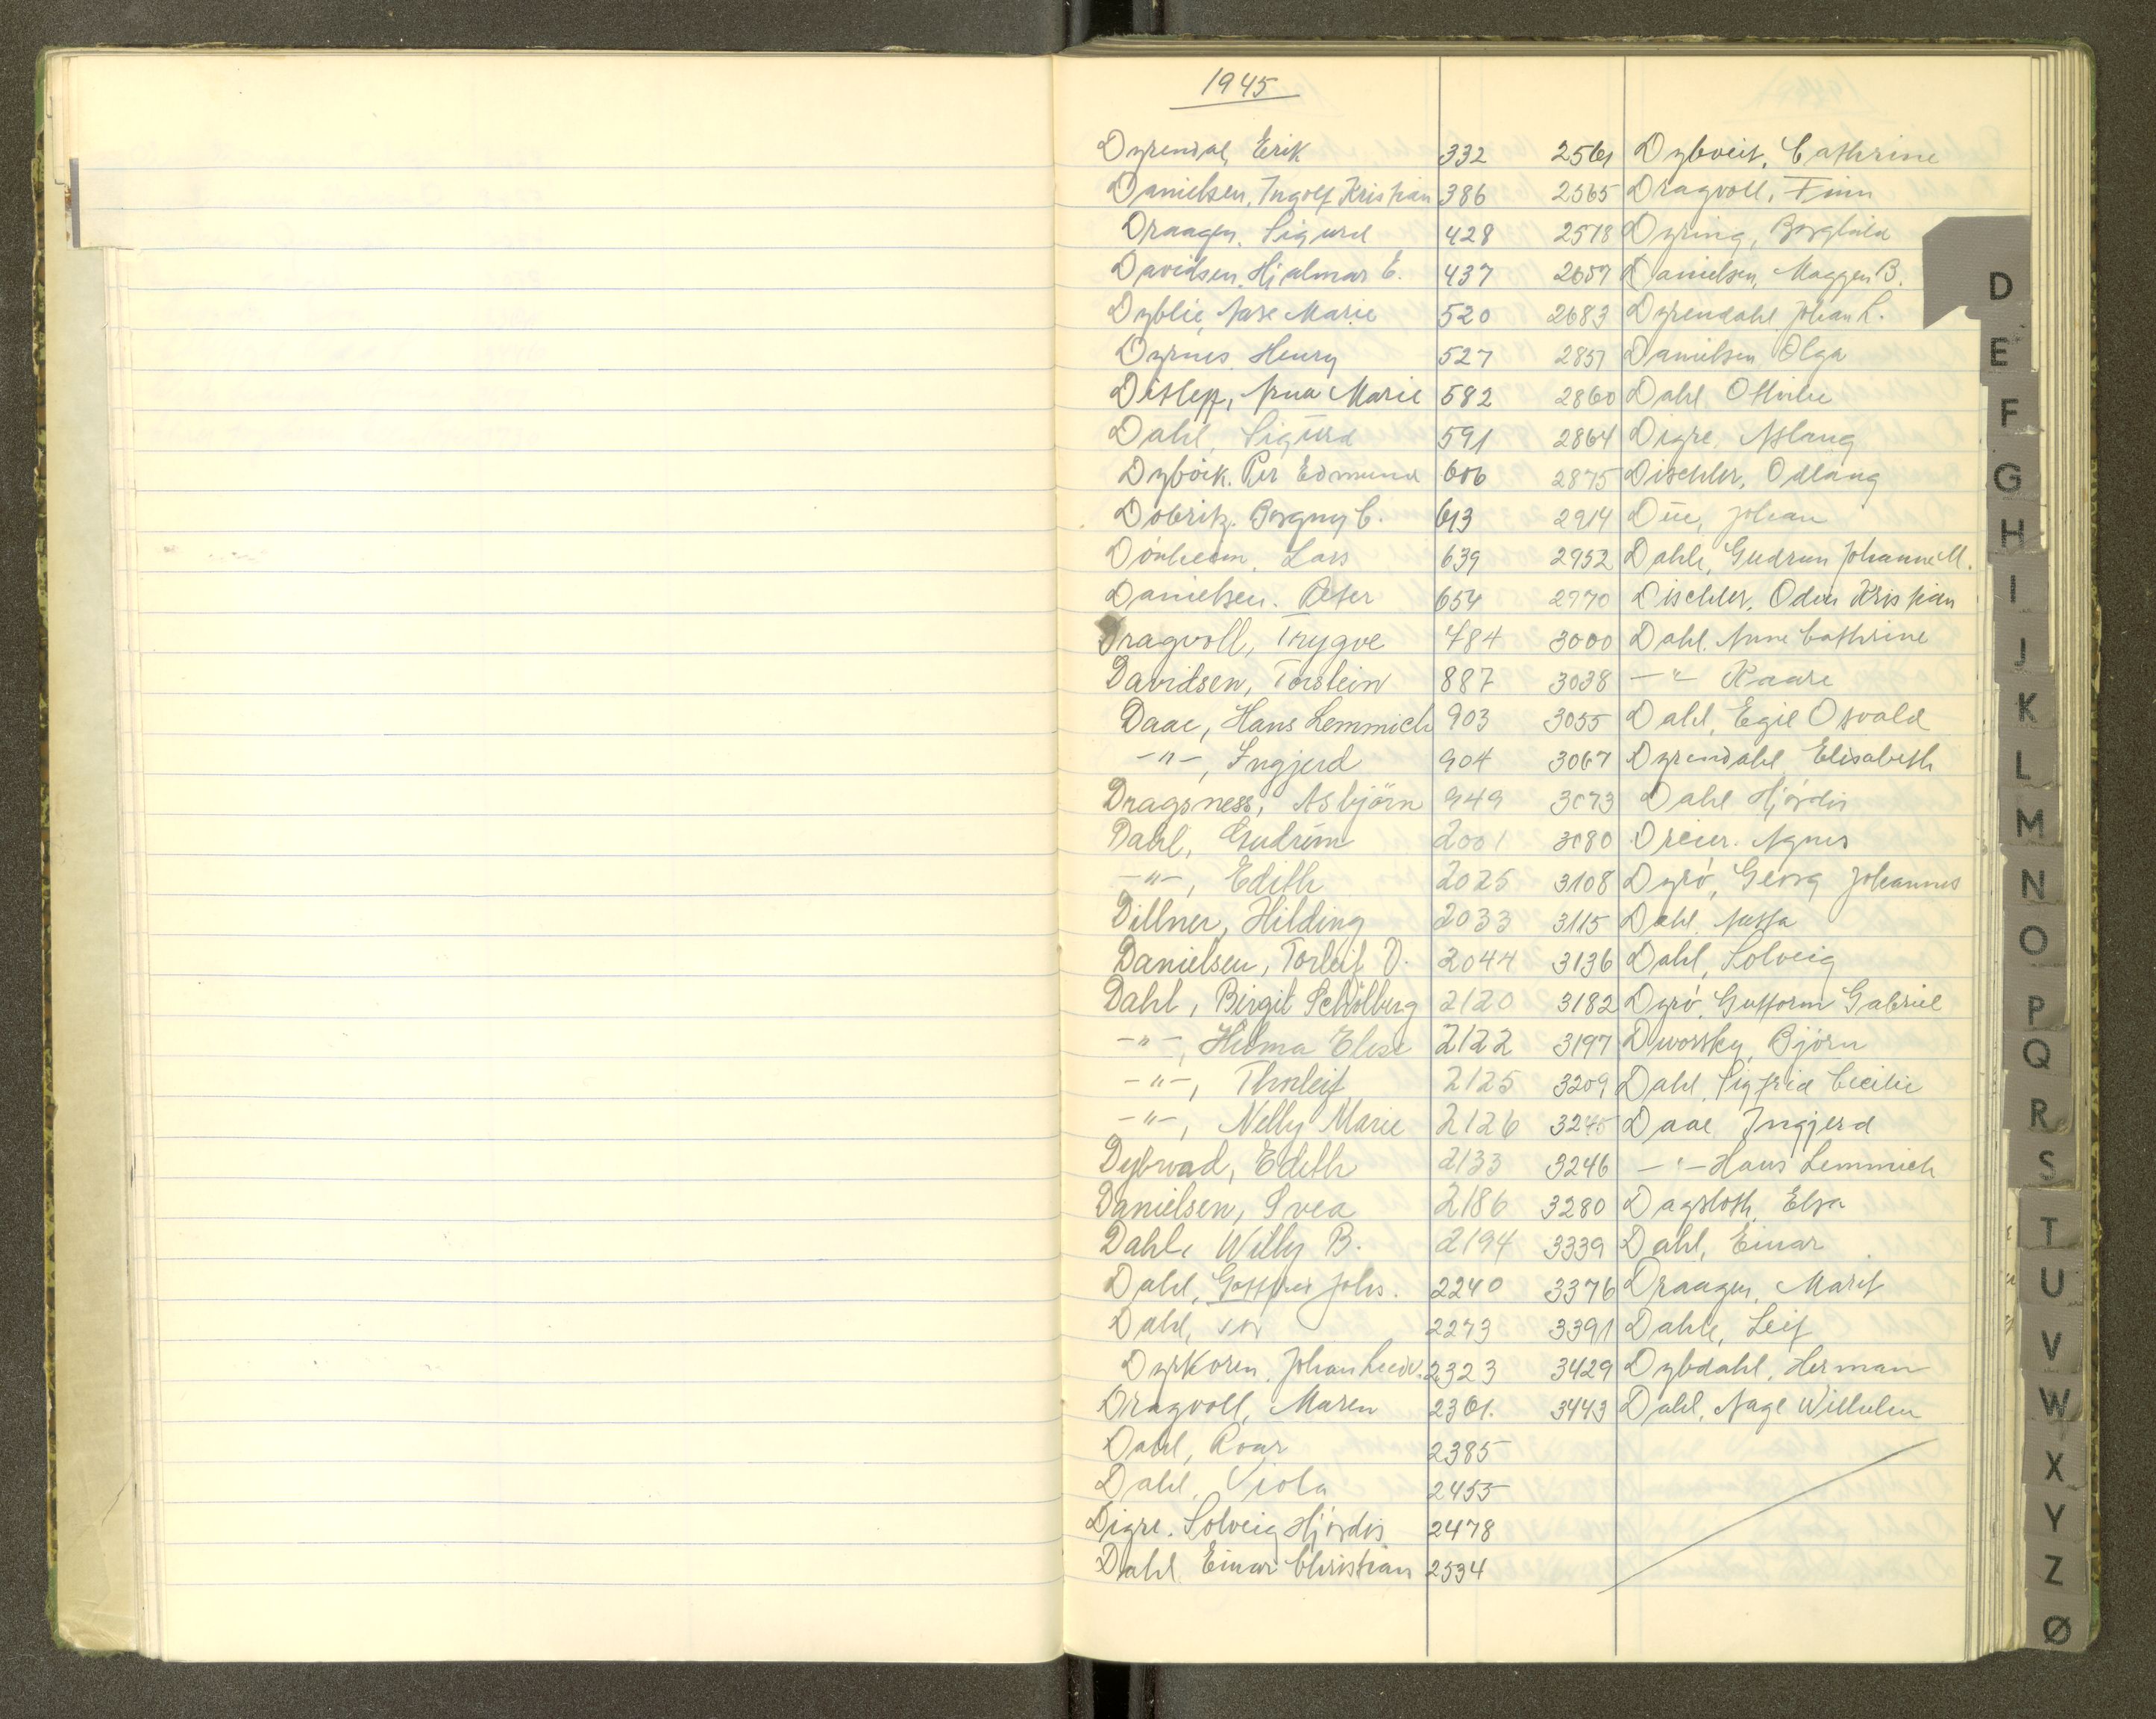 1945
Dyrendal, Erik 332 2561 Dybveit, Cathrine
Danielsen, Ingolf Kristian 386 2565 Dragvoll, Finn
Draagen, Sigurd 428 2578 Dyring, Borghild
Davidsen, Hjalmar E. 437 2657 Danielsen, Maggen B.
Dyblie, Aase Marie 520 2683 Dyrendahl Johan L.
Dyrnes, Henry 527 2857 Danielsen Olga
Anna Marie 582 2860 Dahl
Dahl, Sigurd 591 2864 Digre, Aslaug
Per Edmund 606 2875 Dischler, Odlaug
Borgny C. 613 2914 Due, Johan
Lars 639 2952 Dahle, Gudrun Johanne M.
Danielsen. Peter 654 2970 Dischler, Odin Kristian
Dragvoll, Trygve 784 3000 Dahl. Anne Cathrine
Davidsen, Torstein 887 3038 -"- Kaare
Daae, Hans Lemmich 903 3055 Dahl, Egil Osvald
-"-, Ingjerd 904 3067 Dyrendahl Elisabeth
Dragsness, Asbjörn 949 3073 Dahl Hjördis
Dahl, Gudrun 2001 3080 Dreier. Agnes
-"-, Edith 2025 3108 Dyrö, Georg Johannes
Dillner, Hilding 2033 3115 Dahl,
Danielsen, Torleif D. 2044 3136 Dahl, Solveig
Dahl, Birgit Schölberg 2120 3182 Dyrö, Guttorm Gabriel
-"-, Hilma Elise 2122 3197 Dworsky, Björn
-"-, Thorleif 2125 3209 Dahl, Sigfrid Cecilie
-"-, Nelly Marie 2126 3245 Daae Ingjerd
Dybwad, Edith 2133 3246 -"- Hans Lemmich
Danielsen, Svea 2186 3280 Dagsloth, Elsa
Dahl, Willy B. 2194 3339 Dahl, Einar
Dahl, Johs. 2240 3376 Draagen, Marit
Dahl, 2273 3391 Dahle, Leif
Dyrkoren, Johan Ludv. 2323 3429 Dybdahl, Herman
Dragvoll, Maren 2361. 3443 Dahl, Aage Wilhelm
Dahl, Roar 2385
Dahl, Viola 2455
Digre. Solveig Hjördis 2478
Dahl Einar Christian 2534
D
E
F
G
H
I
J
K
L
M
N
O
P
Q
R
S
T
U
V
W
X
Y
Z
Ø